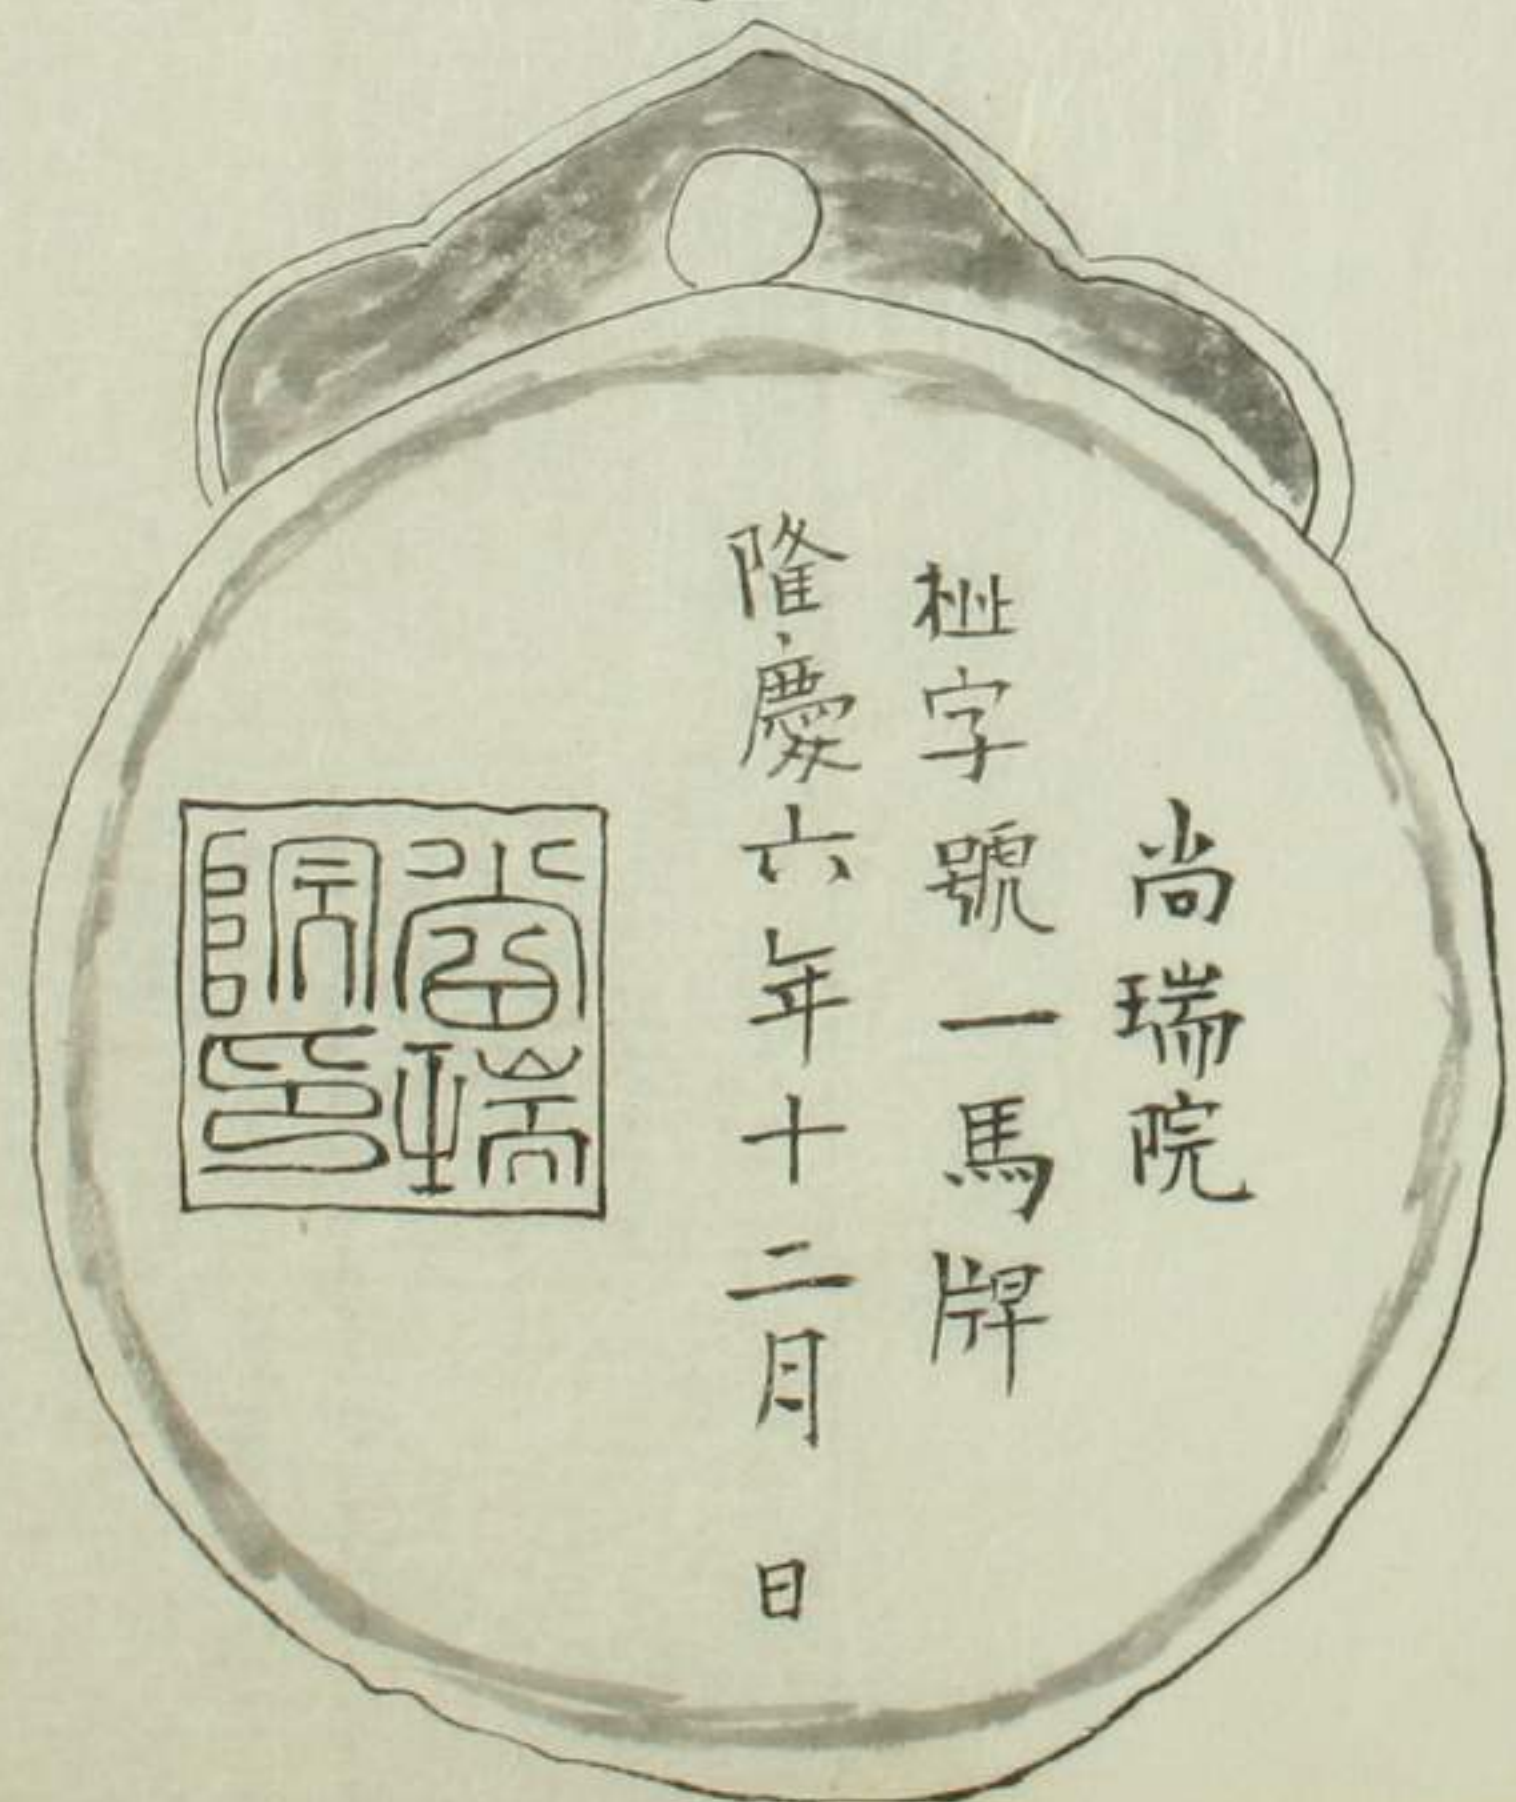 尚瑞院
字號一馬牌
隆慶六年十二月 日
尚瑞院印